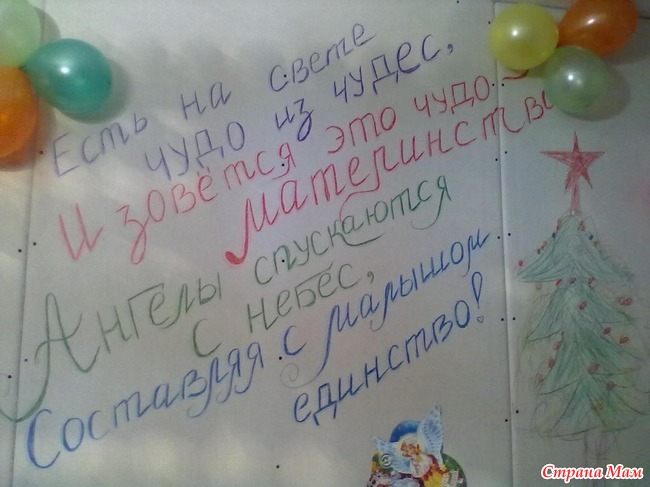 Есть на свете
чудо из чудес,
И зовётся это чудо -
материнство
Ангелы спускаются
с небес,
Составляя с малышом
единство!
Страна Мам